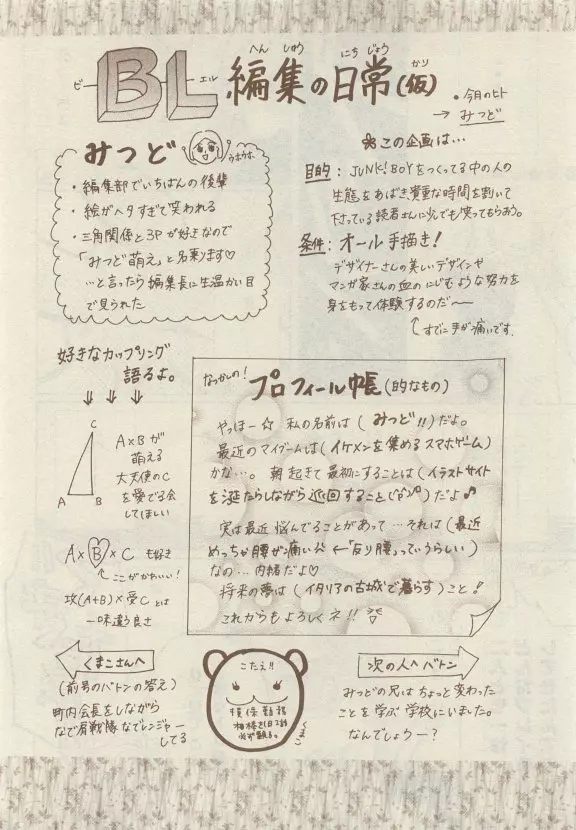 ビー BL エル 編集の日常(仮)
へん しゅう にち じょう かり
・今月のヒト
→ みつど
みつど
ウホウホ
・編集部でいちばんの後輩
・絵がヘタすぎて笑われる
・三角関係と3Pが好きなので
「みつど萌え」と名乗ります♡
…と言ったら編集長に生温かい目
で見られた
❀この企画は…
目的:JUNK!BOYをつくってる中の人の
生態をあばき貴重な時間を割いて
下さっている読者さんに少しでも笑ってもらおう。
条件:オール手描き!
デザイナーさんの美しいデザインや
マンガ家さんの血のにじむような努力を
身をもって体験するのだ〜
↑すでに手が痛いです。
好きなカップリング
語るよ。
↓ ↓ ↓
C
A B
A×Bが
萌える
大天使のC
を愛でる会
してほしい
A×B×C も好き
↑ここがかわいい!
攻(A+B)×受C とは
一味違う良さ
なつかしの!
プロフィール帳(的なもの)
やっほー☆ 私の名前は(みつど!!)だよ。
最近のマイブームは(イケメンを集めるスマホゲーム)
かな…。朝起きて最初にすることは(イラストサイト
を涎たらしながら巡回すること)だよ♪
実は最近悩んでることがあって…それは(最近
めっちゃ腰が痛い ←「反り腰」っていうらしい)
なの…内緒だよ♡
将来の夢は(イタリアの古城で暮らす)こと!
これからもよろしくネ!!
くまこさんへ
(前号のバトンの答え)
町内会長をしながら
なで肩戦隊なでレンジャー
してる
こたえ!!
相棒
くまこ
次の人へバトン
みつどの兄はちょっと変わった
ことを学ぶ学校にいました。
なんでしょうー?